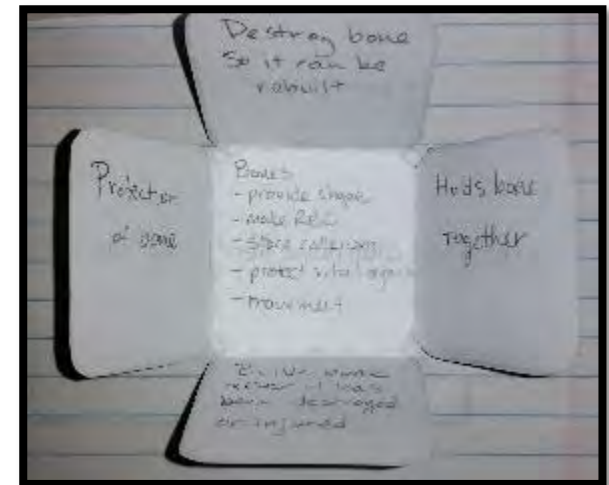 Destroy bone
So it can be
rebuilt
Protector
of bone
Bones
- provide shape
- Make RBC
- Store calcium
- protect vital organs
- movement
Holds bone
together
bone
it has
been destroyed
or injured